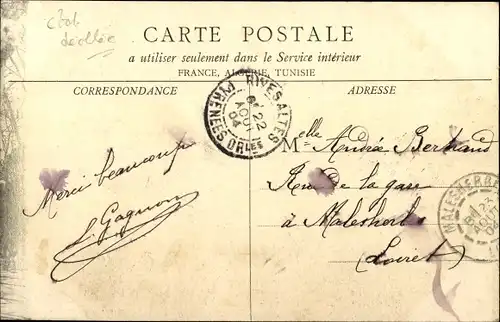 CARTE POSTALE
a utiliser seulement dans le Service intérieur
FRANCE, ALGERIE, TUNISIE
CORRESPONDANCE
ADRESSE
RIVESALTES
22
AOUT
04
PYRENEES ORles
Merci beaucoup
L. Gagnon
Melle Andrée Bertrand
Rue de la gare
à Malesherbes
(Loiret)
MALESHERBES
23